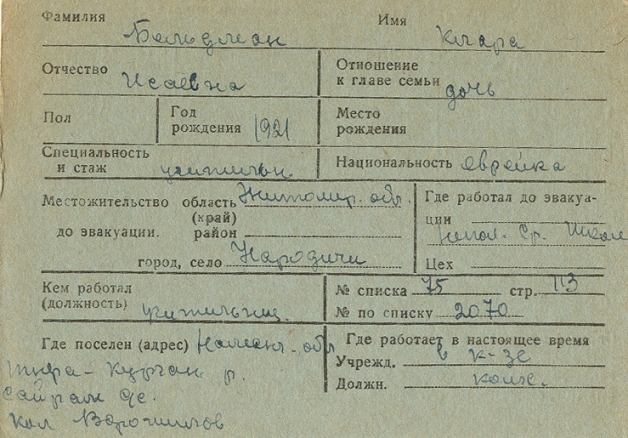 Фамилия Бельдман Имя Клара
Отчество Исаевна Отношение к главе семьи дочь
Пол Год рождения 1921 Место рождения
Специальность и стаж учительн. Национальность еврейка
Местожительство область Житомир. обл. Где работал до эвакуа-
(край) ции
до эвакуации. район Непол. Ср. Школе
город, село Народичи Цех
Кем работал № списка 75 стр. 113
(должность) учительниц. № по списку 2070
Где поселен (адрес) Наманг. обл Где работает в настоящее время
Учрежд. в к-зе
Тюра-Курган. р. Должн. колх.
Сайрам
Кол Ворошилов